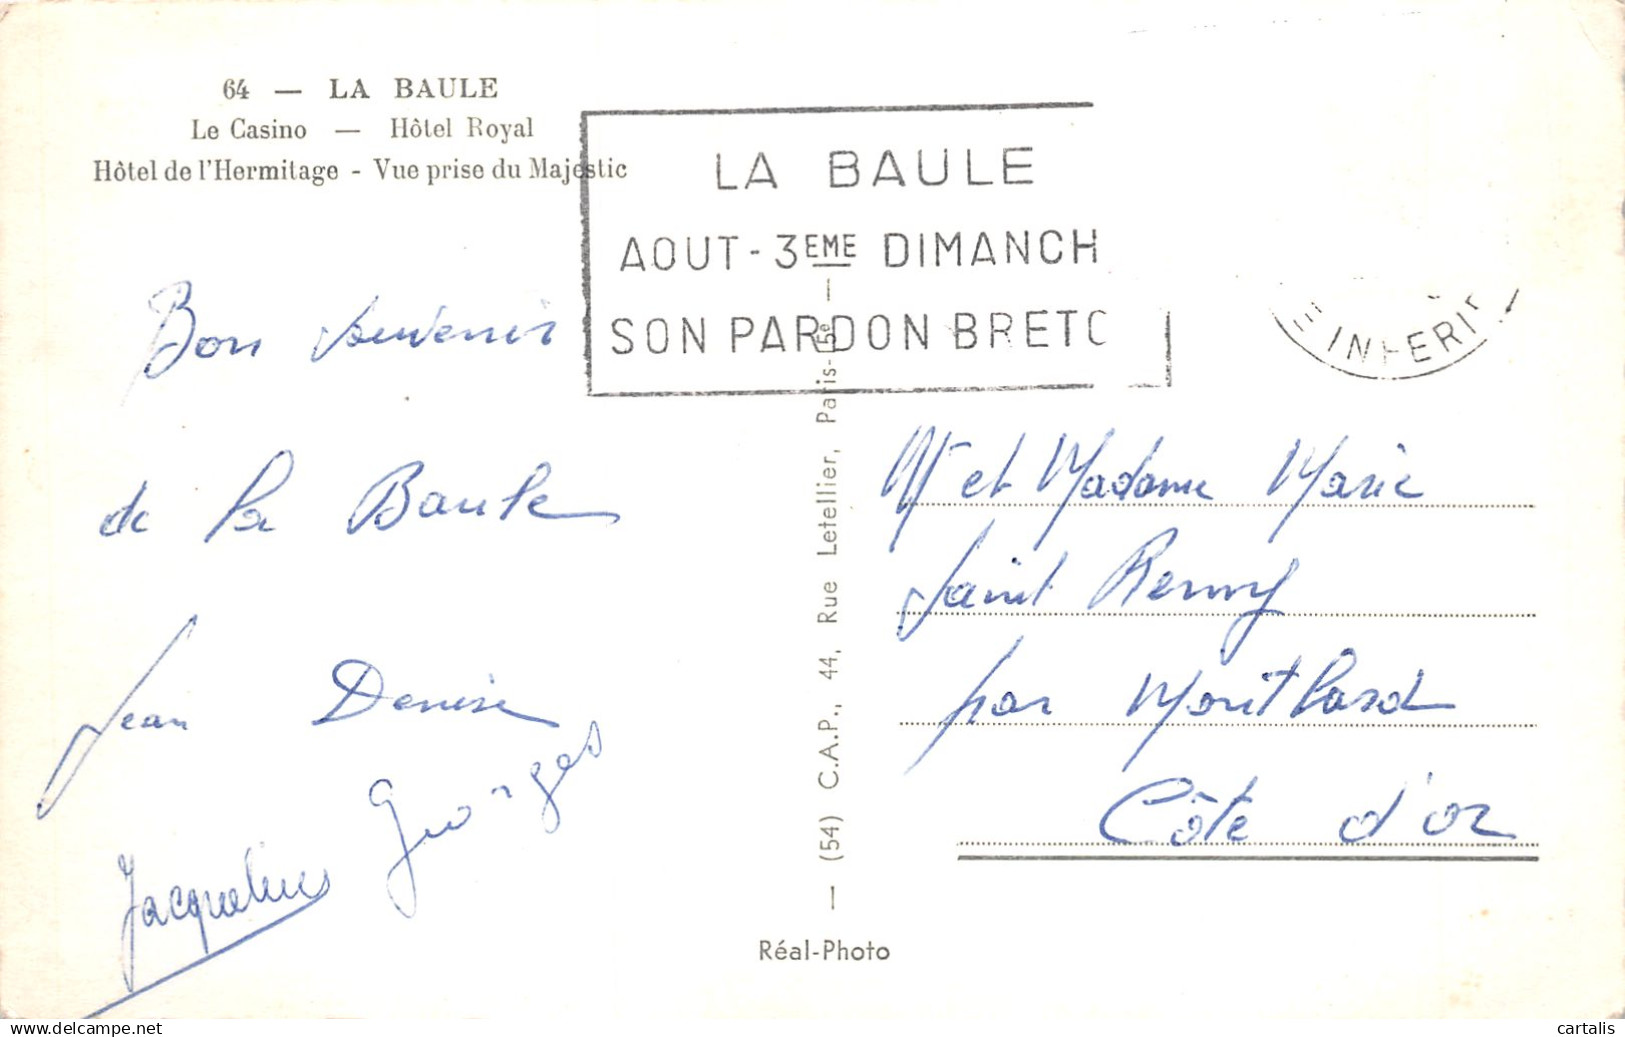 64 — LA BAULE
Le Casino — Hôtel Royal
Hôtel de l'Hermitage - Vue prise du Majestic
LA BAULE
AOUT - 3EME DIMANCH
SON PARDON BRETO
E INFERI
Bon souvenir
de la Baule
Jean Denise
Georges
Jacqueline
(54) C.A.P., 44, Rue Letellier, Paris-15e
Mr et Madame Marie
Saint Remy
par Montbard
Côte d'or
Réal-Photo
www.delcampe.net
cartalis